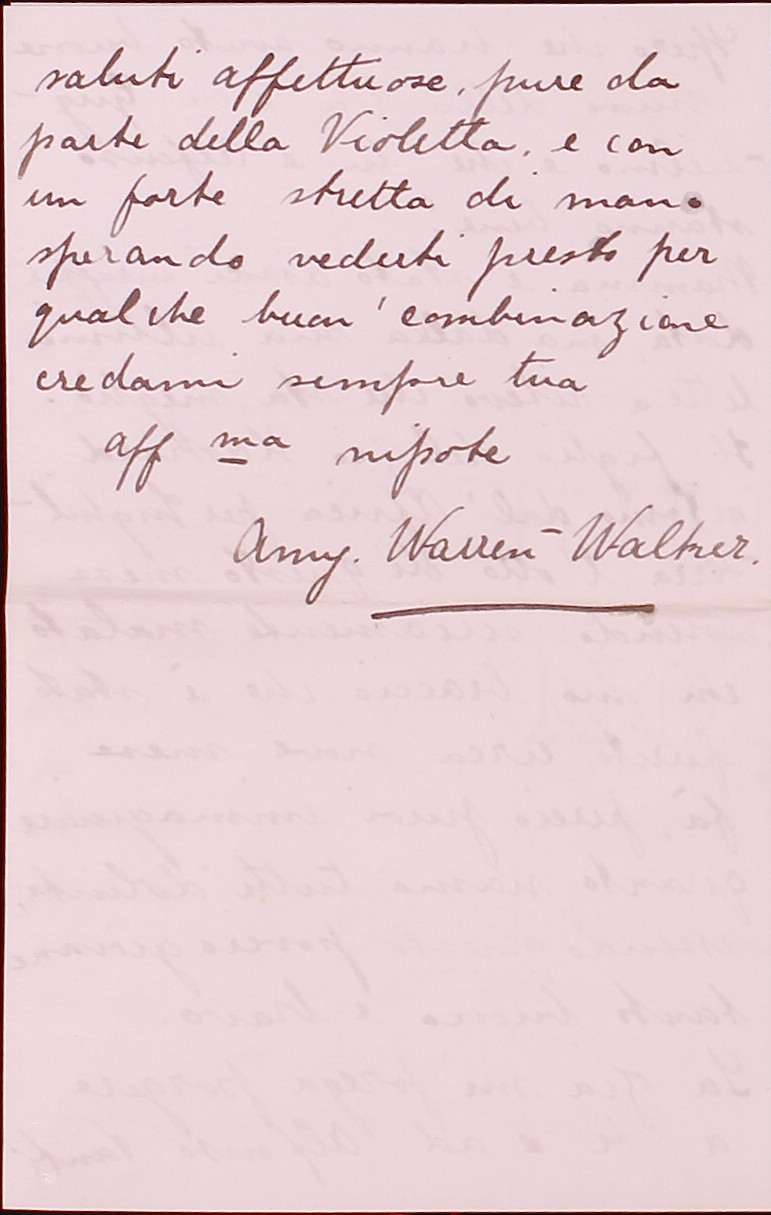 saluti affettuose, pure da
parte della Violetta, e con
un forte stretta di mano
sperando vederti presto per
qualche buon' combinazione
credami sempre tua
aff ma nipote
Amy. Warren-Walker.